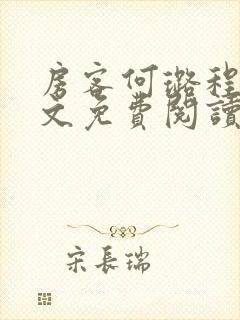 房客何璐程
文免費閱讀
宋長瑞